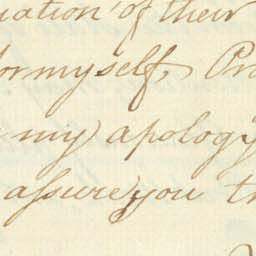 uation of their
for myself, Pr
my apology
assure you th